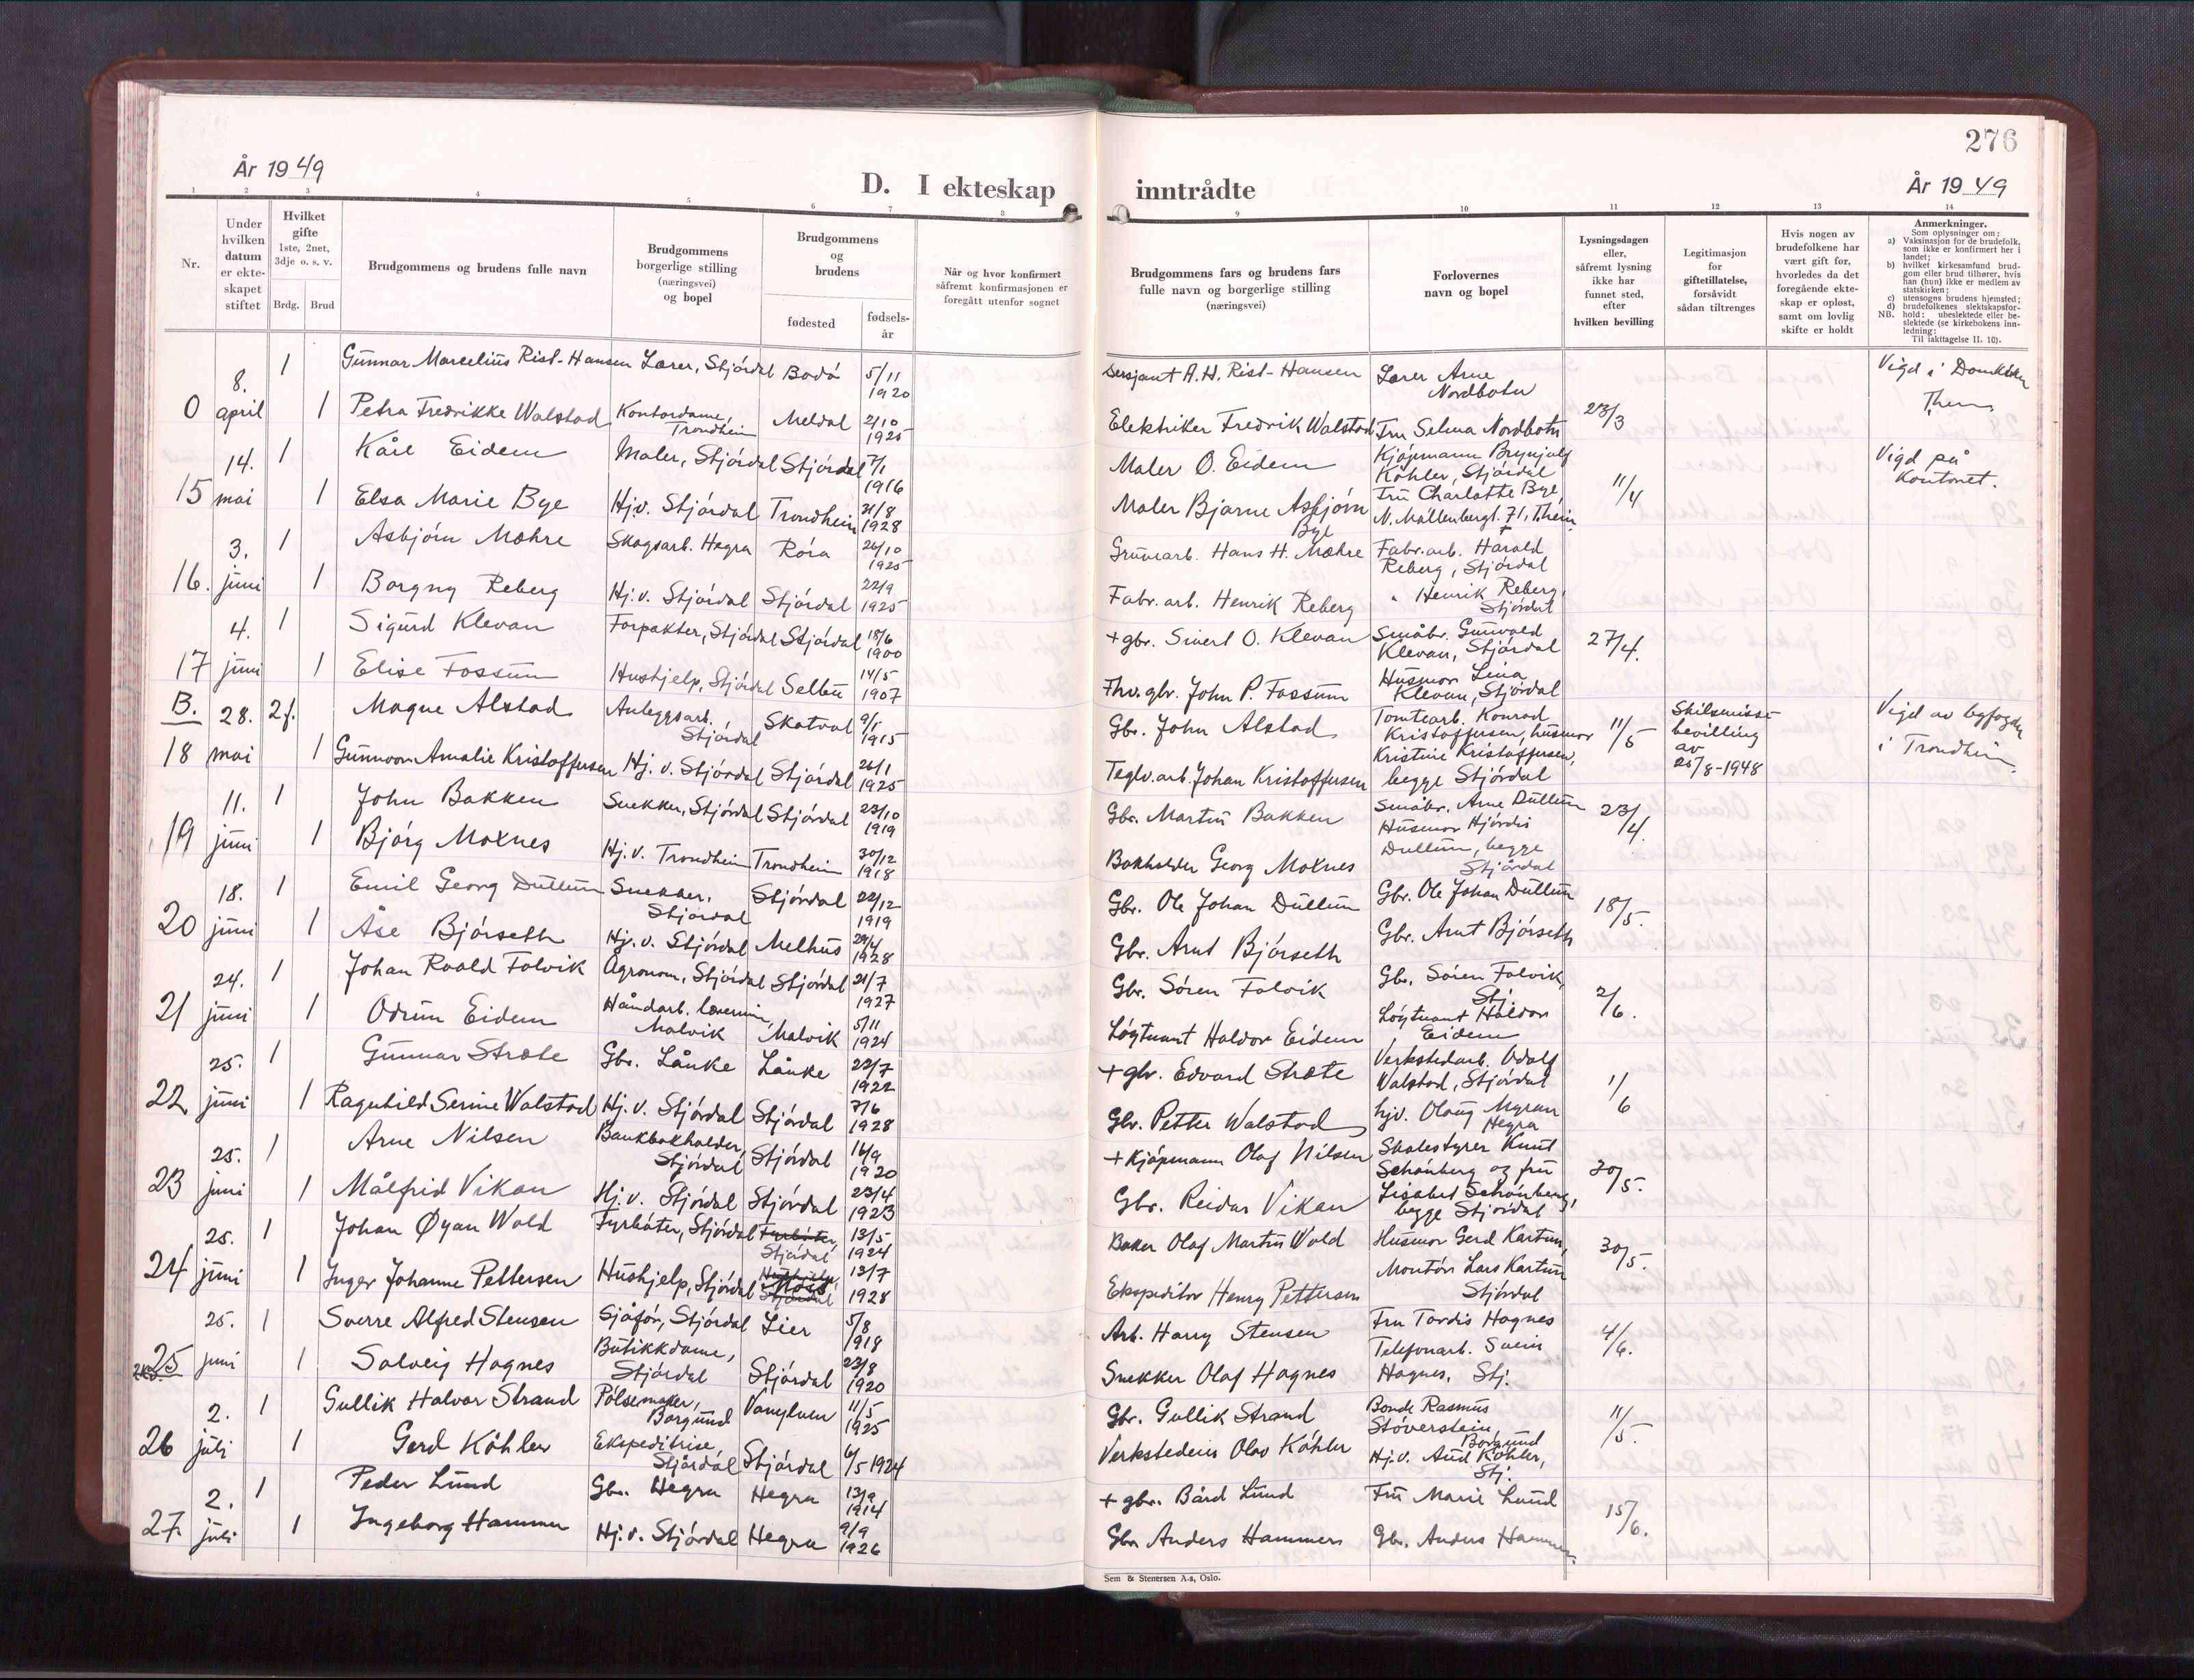 276
År 1949
D. I ekteskap inntrådte
År 1949
1 2 3 4 5 6 7 8 9 10 11 12 13 14
Nr.
Under hvilken datum er ekteskapet stiftet
Hvilket gifte
1ste, 2net, 3dje o. s. v.
Brdg. Brud
Brudgommens og brudens fulle navn
Brudgommens borgerlige stilling (næringsvei) og bopel
Brudgommens og brudens
fødested
fødsels-år
Når og hvor konfirmert såfremt konfirmasjonen er foregått utenfor sognet
Brudgommens fars og brudens fars fulle navn og borgerlige stilling (næringsvei)
Forlovernes navn og bopel
Lysningsdagen eller, såfremt lysning ikke har funnet sted, efter hvilken bevilling
Legitimasjon for giftetillatelse, forsåvidt sådan tiltrenges
Hvis nogen av brudefolkene har vært gift før, hvorledes da det foregående ekteskap er opløst, samt om lovlig skifte er holdt
Anmerkninger.
Som oplysninger om:
a) Vaksinasjon for de brudefolk, som ikke er konfirmert her i landet;
b) hvilket kirkesamfund brudgom eller brud tilhører, hvis han (hun) ikke er medlem av statskirken;
c) utensogns brudens hjemsted;
d) brudefolkenes slektskapsforhold: ubeslektede eller beslektede (se kirkebokens innledning:
NB. Til iakttagelse II. 10).
8. 1 Gunnar Marcelius Rist-Hansen Lærer, Stjørdal Bodø 5/11 1920 Sersjant A.H. Rist-Hansen Lærer Arne Nordbotn Vigd i Domkirken
0 april 1 Petra Fredrikke Walstad Kontordame, Trondheim Meldal 2/10 1925 Elektriker Fredrik Walstad Fru Selma Nordbotn 23/3 Them
14. 1 Kåre Eidem Maler, Stjørdal Stjørdal 7/1 1916 Maler O. Eidem Kjøpmann Brynjulf Köhler, Stjørdal Vigd på Kontoret.
15 mai 1 Elsa Marie Bye Hj.v. Stjørdal Trondheim 21/8 1928 Maler Bjarne Asbjørn Bye Fru Charlotte Bye, N. Møllenbergt. 71, Theim 11/4
3. 1 Asbjørn Mæhre Skogsarb. Hegra Røra 26/10 1925 Gruvearb. Hans H. Mæhre Fabr.arb. Harald Reberg, Stjørdal
16. juni 1 Borgny Reberg Hj.v. Stjørdal Stjørdal 22/9 1925 Fabr.arb. Henrik Reberg " Henrik Reberg, Stjørdal
4. 1 Sigurd Klevan Forpakter, Stjørdal Stjørdal 18/6 1900 + gbr. Sivert O. Klevan Småbr. Gunvald Klevan, Stjørdal 27/4.
17 juni 1 Elise Fossum Hushjelp, Stjørdal Selbu 14/5 1907 Fhv. gbr. John P. Fossum Husmor Lina Klevan, Stjørdal
B. 28. 2f. Magne Alstad Anleggsarb., Stjørdal Skatval 9/1 1915 Gbr. John Alstad Tomtearb. Konrad Kristoffersen, husmor 11/5 Skilsmisse bevilling av 25/8-1948 Vigd av byfogden i Trondheim.
18 mai 1 Gunnvor Amalie Kristoffersen Hj.v. Stjørdal Stjørdal 26/1 1925 Teglv.arb. Johan Kristoffersen Kristine Kristoffersen, begge Stjørdal
11. 1 John Bakken Snekker, Stjørdal Stjørdal 23/10 1919 Gbr. Martin Bakken Småbr. Arne Dullum 23/4.
19 juni 1 Bjørg Moxnes Hj.v. Trondheim Trondheim 30/12 1918 Bokholder Georg Moxnes Husmor Hjørdis Dullum, begge Stjørdal
18. 1 Emil Georg Dullum Snekker, Stjørdal Stjørdal 22/12 1919 Gbr. Ole Johan Dullum Gbr. Ole Johan Dullum 18/5.
20 juni 1 Åse Bjørseth Hj.v. Stjørdal Melhus 29/4 1928 Gbr. Arnt Bjørseth Gbr. Arnt Bjørseth
24. 1 Johan Roald Folvik Agronom, Stjørdal Stjørdal 21/7 1927 Gbr. Søren Folvik Gbr. Søren Folvik, Stj. 2/6.
21 juni 1 Odrun Eidem Håndarb. lærerinne, Malvik Malvik 5/11 1924 Løytnant Haldor Eidem Løytnant Haldor Eidem
25. 1 Gunnar Stræte Gbr. Lånke Lånke 22/7 1922 + gbr. Edvard Stræte Verkstedarb. Odolf Walstad, Stjørdal 1/6
22 juni 1 Ragnhild Serine Walstad Hj.v. Stjørdal Stjørdal 7/6 1928 Gbr. Petter Walstad hjv. Olaug Myran Hegra
25. 1 Arne Nilsen Bankbokholder, Stjørdal Stjørdal 16/9 1920 + Kjøpmann Olaf Nilsen Skolestyrer Knut Schönberg og fru 30/5.
23 juni 1 Målfrid Vikan Hj.v. Stjørdal Stjørdal 23/4 1923 Gbr. Reidar Vikan Lisabet Schönberg, begge Stjørdal
25. 1 Johan Øyan Wold Fyrbøter, Stjørdal Fyrbøter, Stjørdal 13/5 1924 Baker Olaf Martin Wold Husmor Gerd Kartum, 30/5.
24 juni 1 Inger Johanne Pettersen Hushjelp, Stjørdal Hushjelp, Stjørdal 13/7 1928 Ekspeditør Henry Pettersen Montør Lars Kartum Stjørdal
25. 1 Sverre Alfred Stensen Sjåfør, Stjørdal Lier 5/8 1918 Arb. Harry Stensen Fru Tordis Hognes 4/6.
25 juni 1 Solveig Hognes Butikkdame, Stjørdal Stjørdal 23/8 1920 Snekker Olaf Hognes Telefonarb. Svein Hognes, Stj.
2. 1 Gullik Halvor Strand Pølsemaker, Borgund Vanylven 11/5 1925 Gbr. Gullik Strand Bonde Rasmus Støverstein, Borgund 11/5.
26 juli 1 Gerd Köhler Ekspeditrise, Stjørdal Stjørdal 6/5 1924 Verkstedeier Olav Köhler Hj.v. Aud Köhler, Stj.
2. 1 Peder Lund Gbr. Hegra Hegra 13/9 1914 + gbr. Bård Lund Fru Marie Lund 15/6.
27. juli 1 Ingeborg Hammer Hj.v. Stjørdal Hegra 9/9 1926 Gbr Anders Hammer Gbr. Anders Hammer
Sem & Stenersen A.s, Oslo.